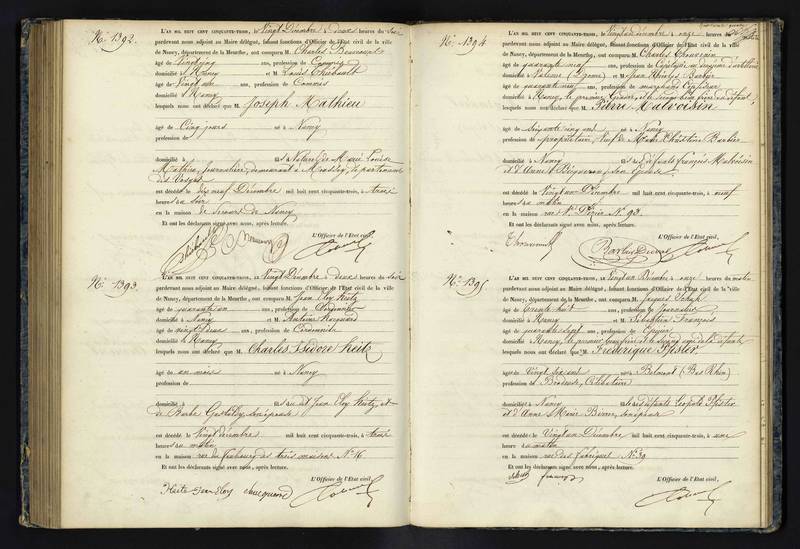 N.º 1392.
L'AN MIL HUIT CENT CINQUANTE-TROIS, le Vingt Décembre à deux heures du soir
pardevant nous adjoint au Maire délégué, faisant fonctions d'Officier de l'Etat civil de la ville
de Nancy, département de la Meurthe, ont comparu M. Charles
âgé de ans, profession de Commis
domicilié à Nancy et M. Louis Thiébault
âgé de Vingt ans, profession de Commis
domicilié à Nancy
lesquels nous ont déclaré que M. Joseph Mathieu
âgé de Cinq jours né à Nancy
profession de
domicilié à fils Naturel de Marie Louise
Mathieu, Journalière, demeurant à département
des Vosges
est décédé le dix neuf Décembre mil huit cent cinquante-trois, à
heures du soir
en la maison de Secours de Nancy
Et ont les déclarants signé avec nous, après lecture.
L'Officier de l'Etat civil,
N.º 1393.
L'AN MIL HUIT CENT CINQUANTE-TROIS, le Vingt Décembre à deux heures du soir
pardevant nous adjoint au Maire délégué, faisant fonctions d'Officier de l'Etat civil de la ville
de Nancy, département de la Meurthe, ont comparu M. Jean Eloy Heitz
âgé de quarante un ans, profession de Cordonnier
domicilié à Nancy et M. Antoine
âgé de vingt deux ans, profession de Cordonnier
domicilié à Nancy
lesquels nous ont déclaré que M. Charles Isidore Heitz
âgé de un mois né à Nancy
profession de
domicilié à fils de Jean Eloy Heitz, et
de Barbe son épouse
est décédé le Vingt Décembre mil huit cent cinquante-trois, à trois
heures du matin
en la maison rue du faubourg des trois maisons N.º 16
Et ont les déclarants signé avec nous, après lecture.
L'Officier de l'Etat civil,
Heitz Jean Eloy
N.º 1394
L'AN MIL HUIT CENT CINQUANTE-TROIS, le Vingt un Décembre à onze heures du
pardevant nous adjoint au Maire délégué, faisant fonctions d'Officier de l'Etat civil de la ville
de Nancy, département de la Meurthe, ont comparu M. Charles Thouvenin
âgé de quarante neuf ans, profession de Capitaine d'artillerie
domicilié à et M. Jean Nicolas Barbier
âgé de quarante ans, profession de marchand
domicilié à Nancy, le premier
lesquels nous ont déclaré que M. Pierre Malvoisin
âgé de Soixante cinq ans né à Nancy
profession de propriétaire, Veuf de Marie Christine Barbier
domicilié à Nancy fils de défunts françois Malvoisin
et d'Anne son épouse
est décédé le Vingt un Décembre mil huit cent cinquante-trois, à neuf
heures du matin
en la maison rue St. Dizier N.º 93.
Et ont les déclarants signé avec nous, après lecture.
L'Officier de l'Etat civil,
N.º 1395.
L'AN MIL HUIT CENT CINQUANTE-TROIS, le Vingt un Décembre à onze heures du matin
pardevant nous adjoint au Maire délégué, faisant fonctions d'Officier de l'Etat civil de la ville
de Nancy, département de la Meurthe, ont comparu M. Jacques
âgé de trente huit ans, profession de Journalier
domicilié à Nancy et M. Sébastien François
âgé de quarante sept ans, profession de
domicilié à Nancy, le premier beau frère et le second ami de la défunte
lesquels nous ont déclaré que M. Frédérique Pfister
âgé de Vingt six ans né à Belmont (Bas Rhin)
profession de Brodeuse, Célibataire
domicilié à Nancy fille de défunts Léopold Pfister
et d'Anne Marie son épouse
est décédé le Vingt un Décembre mil huit cent cinquante-trois, à une
heure du matin
en la maison rue des fabriques N.º 39
Et ont les déclarants signé avec nous, après lecture.
L'Officier de l'Etat civil,